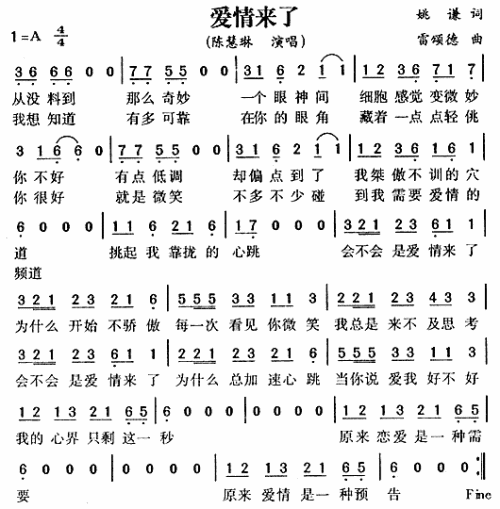 爱情来了
1=A 4/4 (陈慧琳 演唱) 姚谦 词
雷颂德 曲
3 6 6 6 0 0 | 7 7 5 5 0 0 | 3 1 6 2 1 1 | 1 2 3 6 7 1 7 |
从没 料到 那么 奇妙 一个 眼 神间 细胞 感觉 变微妙
我想 知道 有多 可靠 在你 的 眼 角 藏着 一点 点轻佻
你 不好 有点 低调 却偏 点 到了 我桀 傲不 训的 穴
你 很好 就是 微笑 不多 不 少碰 到我 需要 爱情 的
6 0 0 0 | 1 1 6 2 1 6 | 1 7 0 0 | 3 2 2 1 2 3 6 1 1 |
道 挑起 我 靠拢 的 心跳 会不会 是爱 情来 了
频道
3 2 2 1 2 3 2 1 6 | 5 5 5 3 2 3 1 1 3 | 3 2 2 1 2 3 4 3 3 |
为什么 开始 不骄 傲 每一次 看见 你微 笑 我总是 来不 及思 考
3 2 2 1 2 3 6 1 1 | 3 2 2 1 2 3 2 1 6 | 5 5 5 3 2 3 1 1 3 |
会不会 是爱 情来 了 为什么 总加 速心 跳 当你说 爱我 好不 好
1 2 1 3 2 1 6 5 | 6 0 0 0 | 0 0 0 0 | 1 2 1 3 2 1 6 5 |
我的 心界 只剩 这一 秒 原来 恋爱 是一 种需
6 0 0 0 | 0 0 0 0 | 1 2 1 3 2 1 6 5 | 6 0 0 0 :||
要 原来 爱情 是一 种预 告 Fine